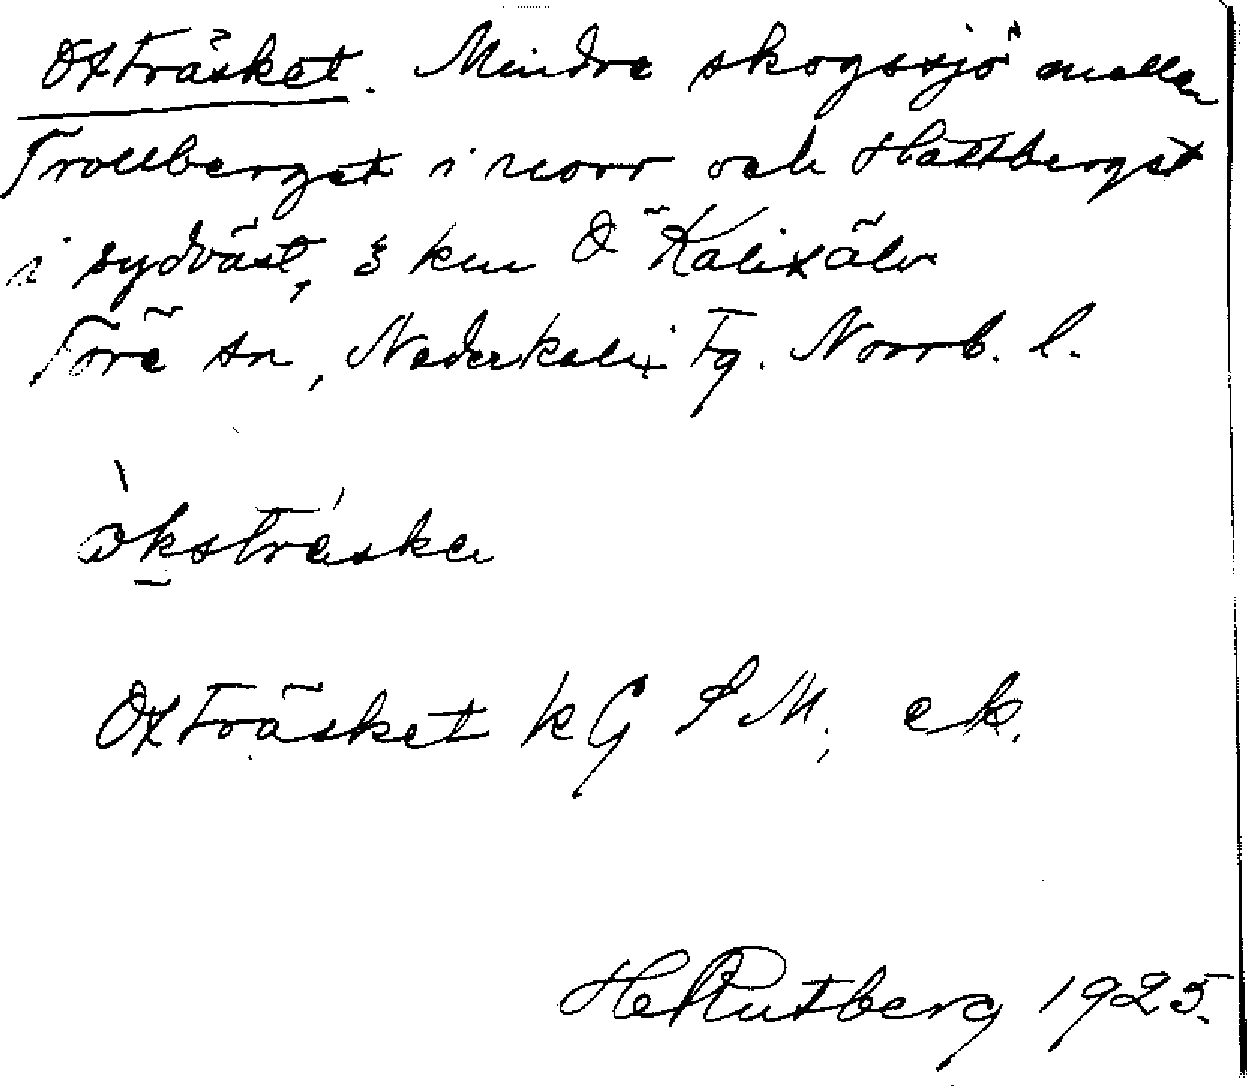 Oxträsket. Mindre skogssjö mellan
Trollberget i norr och Hattberget
i sydväst, 3 km Ö Kalixälv
Töre sn, Nederkalix Tg. Norrb. l.
öksträske
Oxträsket kG SM, ek.
He Rutberg 1925.